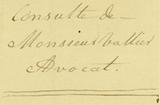 Consulte de
Monsieur Vallier
Avocat.